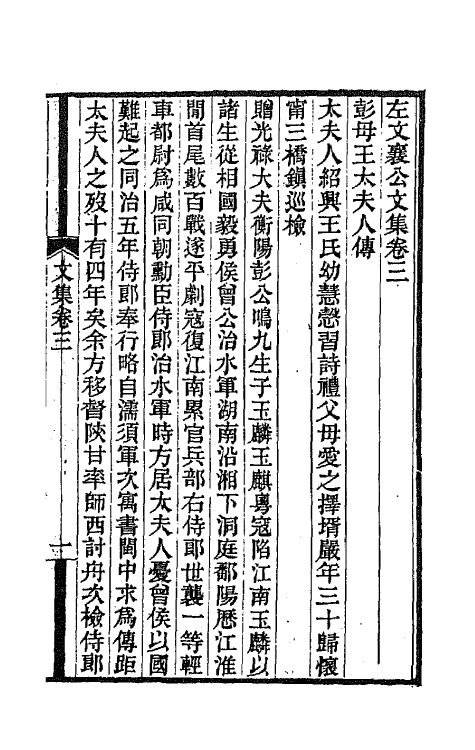 左文襄公文集卷三
彭母王太夫人傳
太夫人紹興王氏幼慧愨習詩禮父母愛之擇壻嚴年三十歸懷
甯三橋鎮巡檢
贈光祿大夫衡陽彭公鳴九生子玉麟玉麒粵寇陷江南玉麟以
諸生從相國毅勇侯曾公治水軍湖南沿湘下洞庭鄱陽厯江淮
閒首尾數百戰遂平劇寇復江南累官兵部右侍郎世襲一等輕
車都尉爲咸同朝勳臣侍郎治水軍時方居太夫人憂曾侯以國
難起之同治五年侍郎奉行略自濡須軍次寓書閩中求爲傳距
太夫人之歿十有四年矣余方移督陝甘率師西討舟次檢侍郎
文集卷三
一